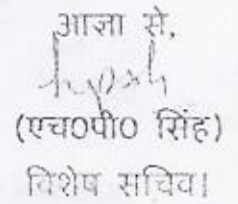 आज्ञा से,
(एच0पी0 सिंह)
विशेष सचिव।